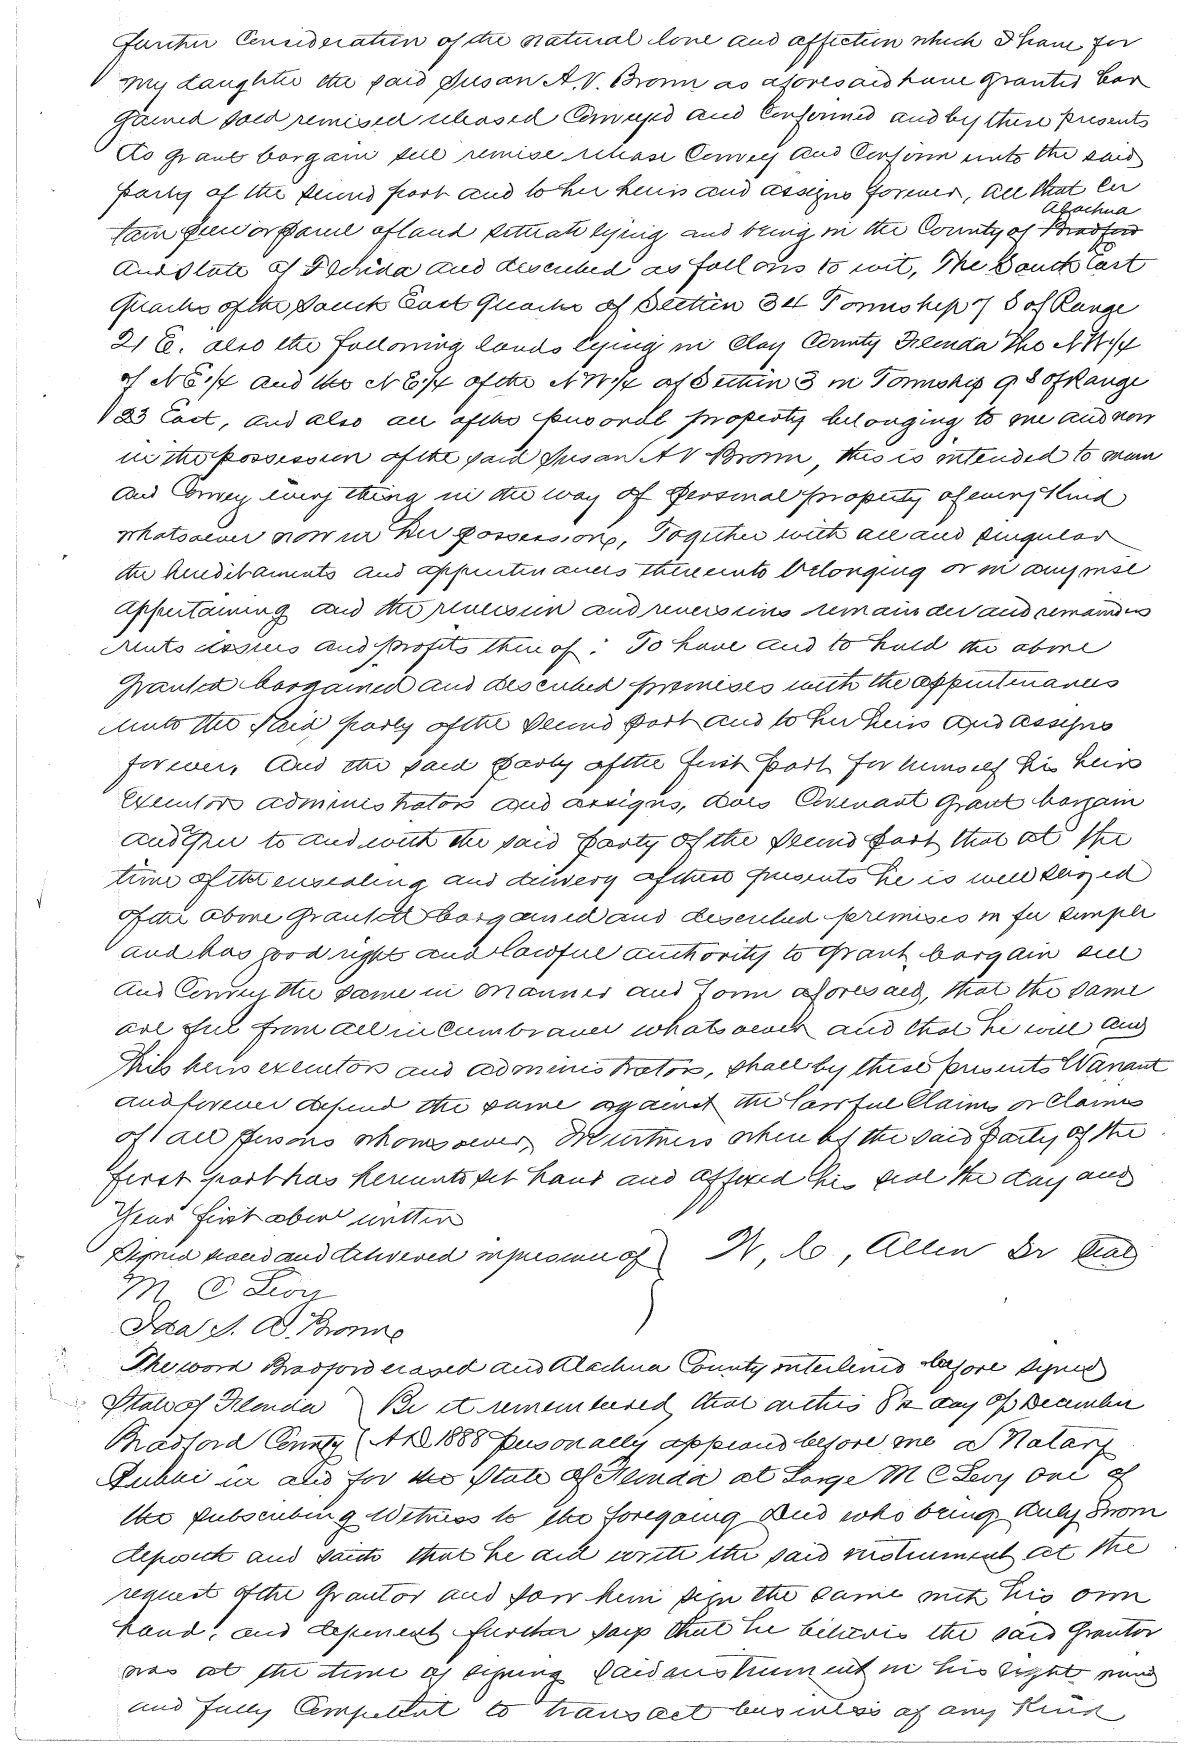 further Consideration of the natural love and affection which I have for
my daughter the said Susan A. V. Brown as aforesaid have granted bar
gained sold remised released Conveyed and Confirmed and by these presents
do grant bargain sell remise release Convey and Confirm unto the said
party of the second part and to her heirs and assigns forever, all that cer
Alachua
tain piece or parcel of land situate lying and being in the County of Bradford
and State of Florida and described as follows to wit, The South East
Quarter of the South East Quarter of Section 34 Township 7 S of Range
21 E. also the following lands lying in Clay County Florida The N W 1/4
of N E 1/4 and the N E 1/4 of the N W 1/4 of Section 3 in Township 9 S of Range
23 East, and also all of the personal property belonging to me and now
in the possession of the said Susan A V Brown, this is intended to mean
and Convey every thing in the way of personal property of every Kind
whatsoever now in her possession, Together with all and singular
the hereditaments and appurtenances thereunto belonging or in anywise
appertaining and the reversion and reversions remainder and remainders
rents issues and profits thereof: To have and to hold the above
granted bargained and described premises with the appurtenances
unto the said party of the second part and to her heirs and assigns
forever, And the said party of the first part for himself his heirs
Executors administrators and assigns, does Covenant grant bargain
and agree to and with the said party of the second part that at the
time of the ensealing and delivery of these presents he is well seized
of the above granted bargained and described premises in fee simple
and has good right and lawful authority to grant, bargain sell
and Convey the same in manner and form aforesaid, that the same
are free from all incumbrances whatsoever and that he will and
his heirs executors and administrators, shall by these presents Warrant
and forever defend the same against the lawful Claims or Claims
of all persons whomsoever, In witness whereof the said party of the
first part has hereunto set hand and affixed his seal the day and
Year first above written
Signed sealed and delivered in presence of } W. C, Allen Sr Seal
M C Levy
Ida S. A. Brown
The word Bradford erased and Alachua County interlined before signed
State of Florida } Be it remembered, that on this 8th day of December
Bradford County { A D 1888 personally appeared before me a Notary
Public in and for the State of Florida at Large M C Levy one of
the subscribing Witness to the foregoing deed who being duly sworn
deposeth and saith that he did write the said instrument at the
request of the grantor and saw him sign the same with his own
hand, and deponent further says that he believes the said grantor
was at the time of signing said instrument in his right mind
and fully Competent to transact business of any Kind